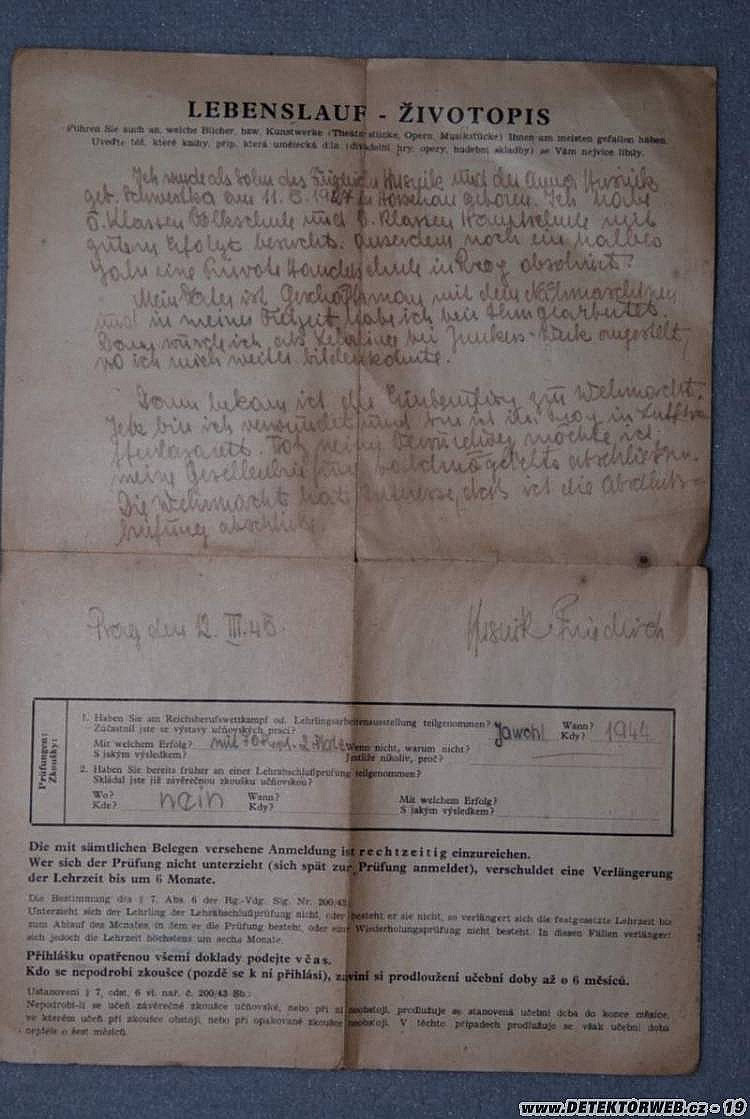 LEBENSLAUF - ŽIVOTOPIS
Führen Sie auch an, welche Bücher, bzw. Kunstwerke (Theaterstücke, Opern, Musikstücke) Ihnen am meisten gefallen haben.
Uveďte též, které knihy, příp. která umělecká díla (divadelní hry, opery, hudební skladby) se Vám nejvíce líbily.
Ich wurde als Sohn des und der Anna
geb. am 11. in geboren. Ich habe
5. Klassen Volkschule und Klassen Hauptschule mit
gutem Erfolgt besucht. Auserdem noch ein halbes
Jahr eine Private Handelsschule in Prag absolviert.
Mein Vater ist mit dem
und in meiner Freizeit habe ich bei ihm gearbeitet.
Dann wurde ich als bei Junkers-Werk angestellt,
wo ich mich weiter bilden konnte.
Dann bekam ich die zu Wehrmacht.
Jetz bin ich verwundet und in
möchte ich
meine abschliessen.
Die Wehrmacht hat Interesse, das ich die
Prag den 12. III. 45.
Friedrich
Prüfungen:
Zkoušky:
1. Haben Sie am Reichsberufswettkampf od. Lehrlingsarbeitenausstellung teilgenommen? Jawohl Wann? 1944
Zúčastnil jste se výstavy učňovských prací? Kdy?
Mit welchem Erfolg? mit Wenn nicht, warum nicht?
S jakým výsledkem? Jestliže nikoliv, proč?
2. Haben Sie bereits früher an einer Lehrabschlußprüfung teilgenommen?
Skládal jste již závěrečnou zkoušku učňovskou?
Wo? nein Wann? Mit welchem Erfolg?
Kde? Kdy? S jakým výsledkem?
Die mit sämtlichen Belegen versehene Anmeldung ist rechtzeitig einzureichen.
Wer sich der Prüfung nicht unterzieht (sich spät zur Prüfung anmeldet), verschuldet eine Verlängerung
der Lehrzeit bis um 6 Monate.
Die Bestimmung des § 7, Abs. 6 der Rg.-Vdg. Slg. Nr. 200/43:
Unterzieht sich der Lehrling der Lehrabschlußprüfung nicht, oder besteht er sie nicht, so verlängert sich die festgesetzte Lehrzeit bis
zum Ablauf des Monates, in dem er die Prüfung besteht, oder eine Wiederholungsprüfung nicht besteht. In diesen Fällen verlängert
sich jedoch die Lehrzeit höchstens um sechs Monate.
Přihlášku opatřenou všemi doklady podejte včas.
Kdo se nepodrobí zkoušce (pozdě se k ní přihlásí), zaviní si prodloužení učební doby až o 6 měsíců.
Ustanovení § 7, odst. 6 vl. nař. č. 200/43 Sb.:
Nepodrobí-li se učeň závěrečné zkoušce učňovské, nebo při ní neobstojí, prodlužuje se stanovená učební doba do konce měsíce,
ve kterém učeň při zkoušce obstojí, nebo při opakované zkoušce neobstojí. V těchto případech prodlužuje se však učební doba
nejdéle o šest měsíců.
www.DETEKTORWEB.cz - 19